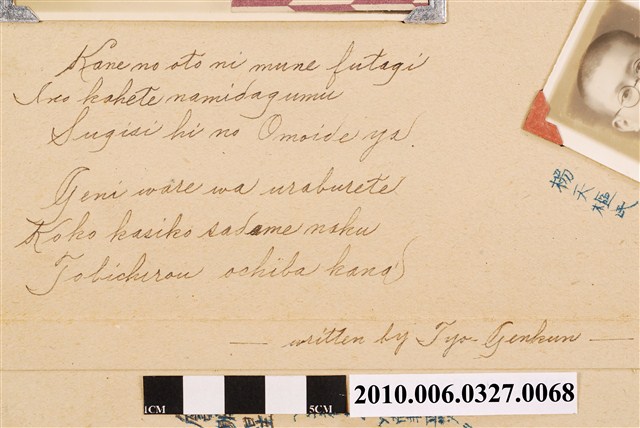 Kane no oto ni mune futagi
Iro kahete namidagumu
Sugisi hi no Omoide ya.
Geni ware wa uraburete
Koko kasiko sadame naku
Tobichirou ochiba kana
— written by Tyo-Genkun —
楊天極氏
1CM 5CM
2010.006.0327.0068